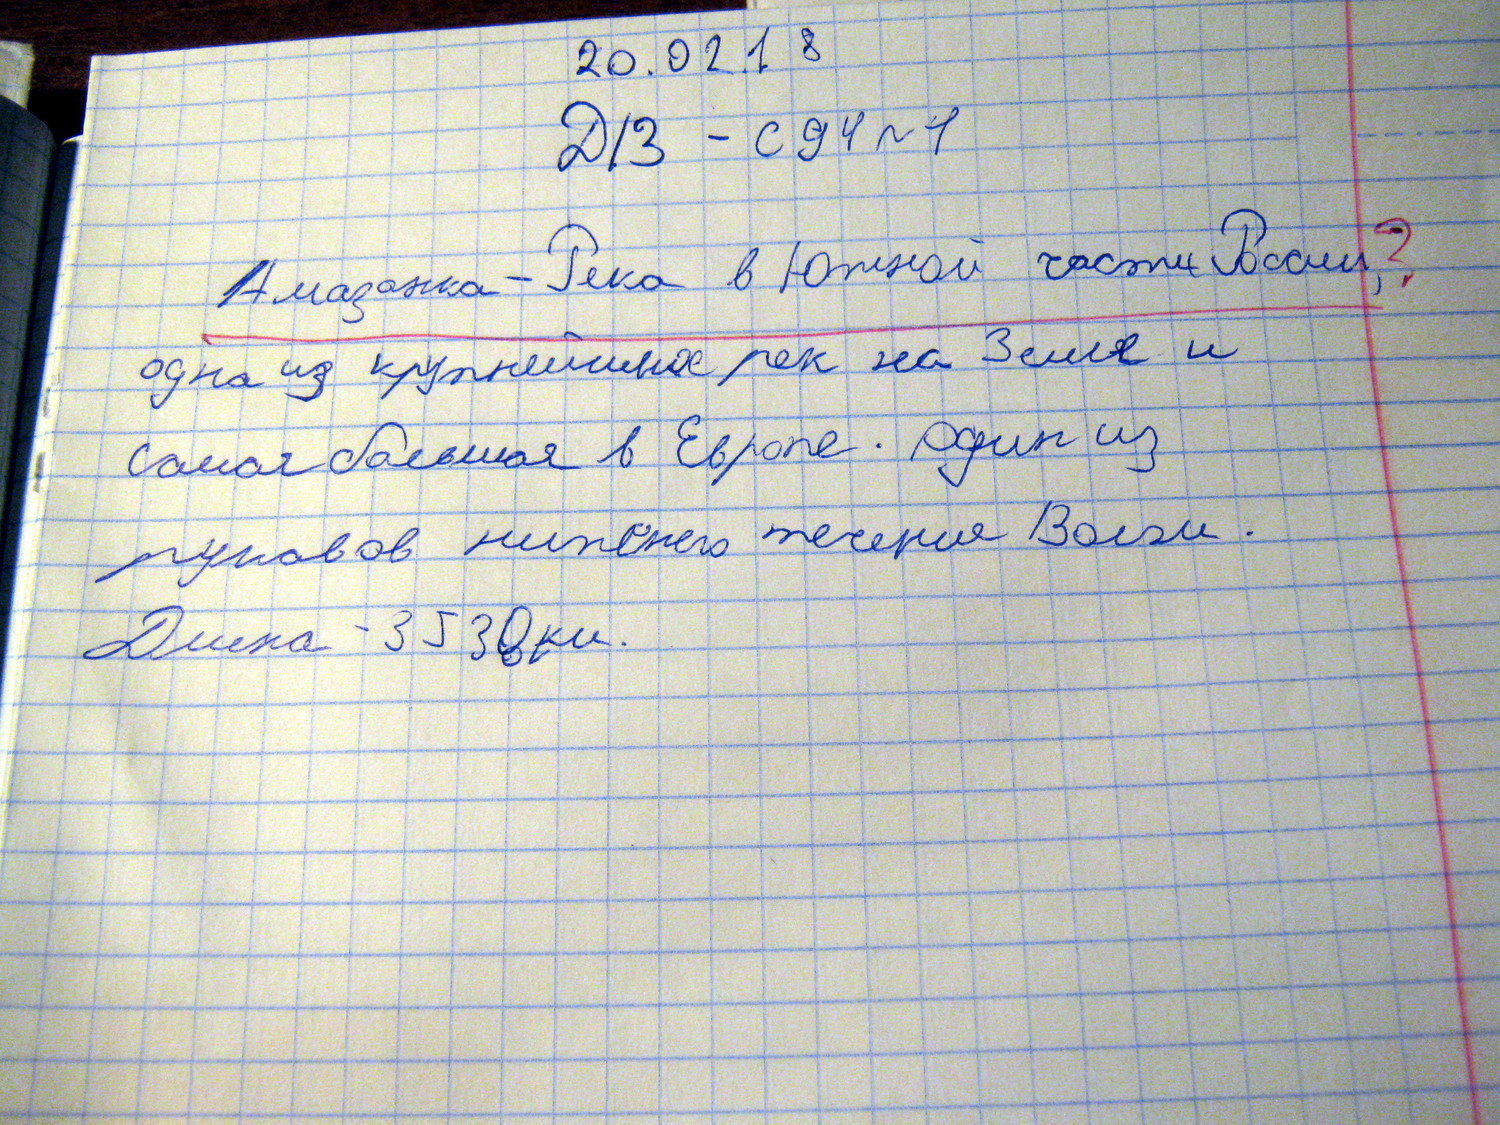 20.02.18
Д/З - с 94 № 1
Амазонка - Река в Южной части России, ?
одна из крупнейших рек на Земле и
самая большая в Европе. Один из
рукавов нижнего течения Волги.
Длина - 3530 км.